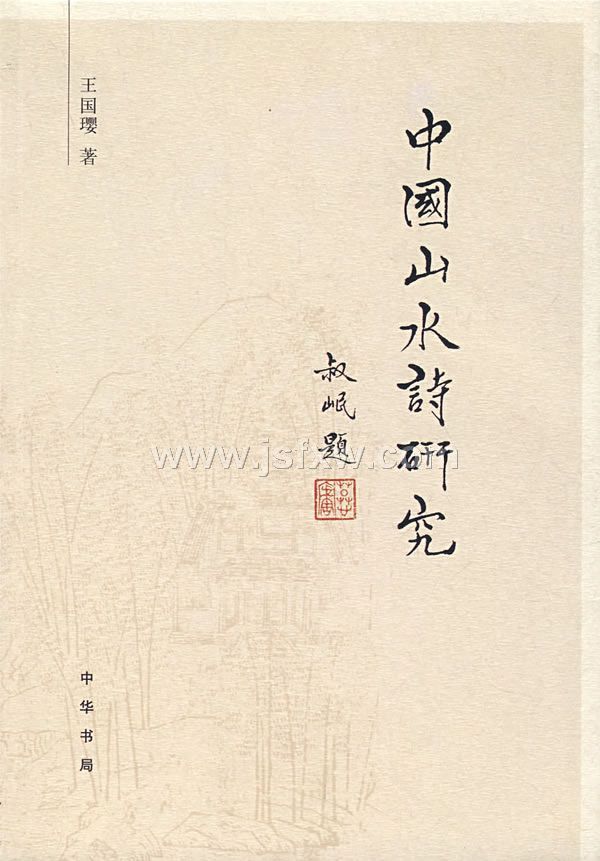 中國山水詩研究
叔岷題
王国璎 著
中华书局
www.jsfxw.com